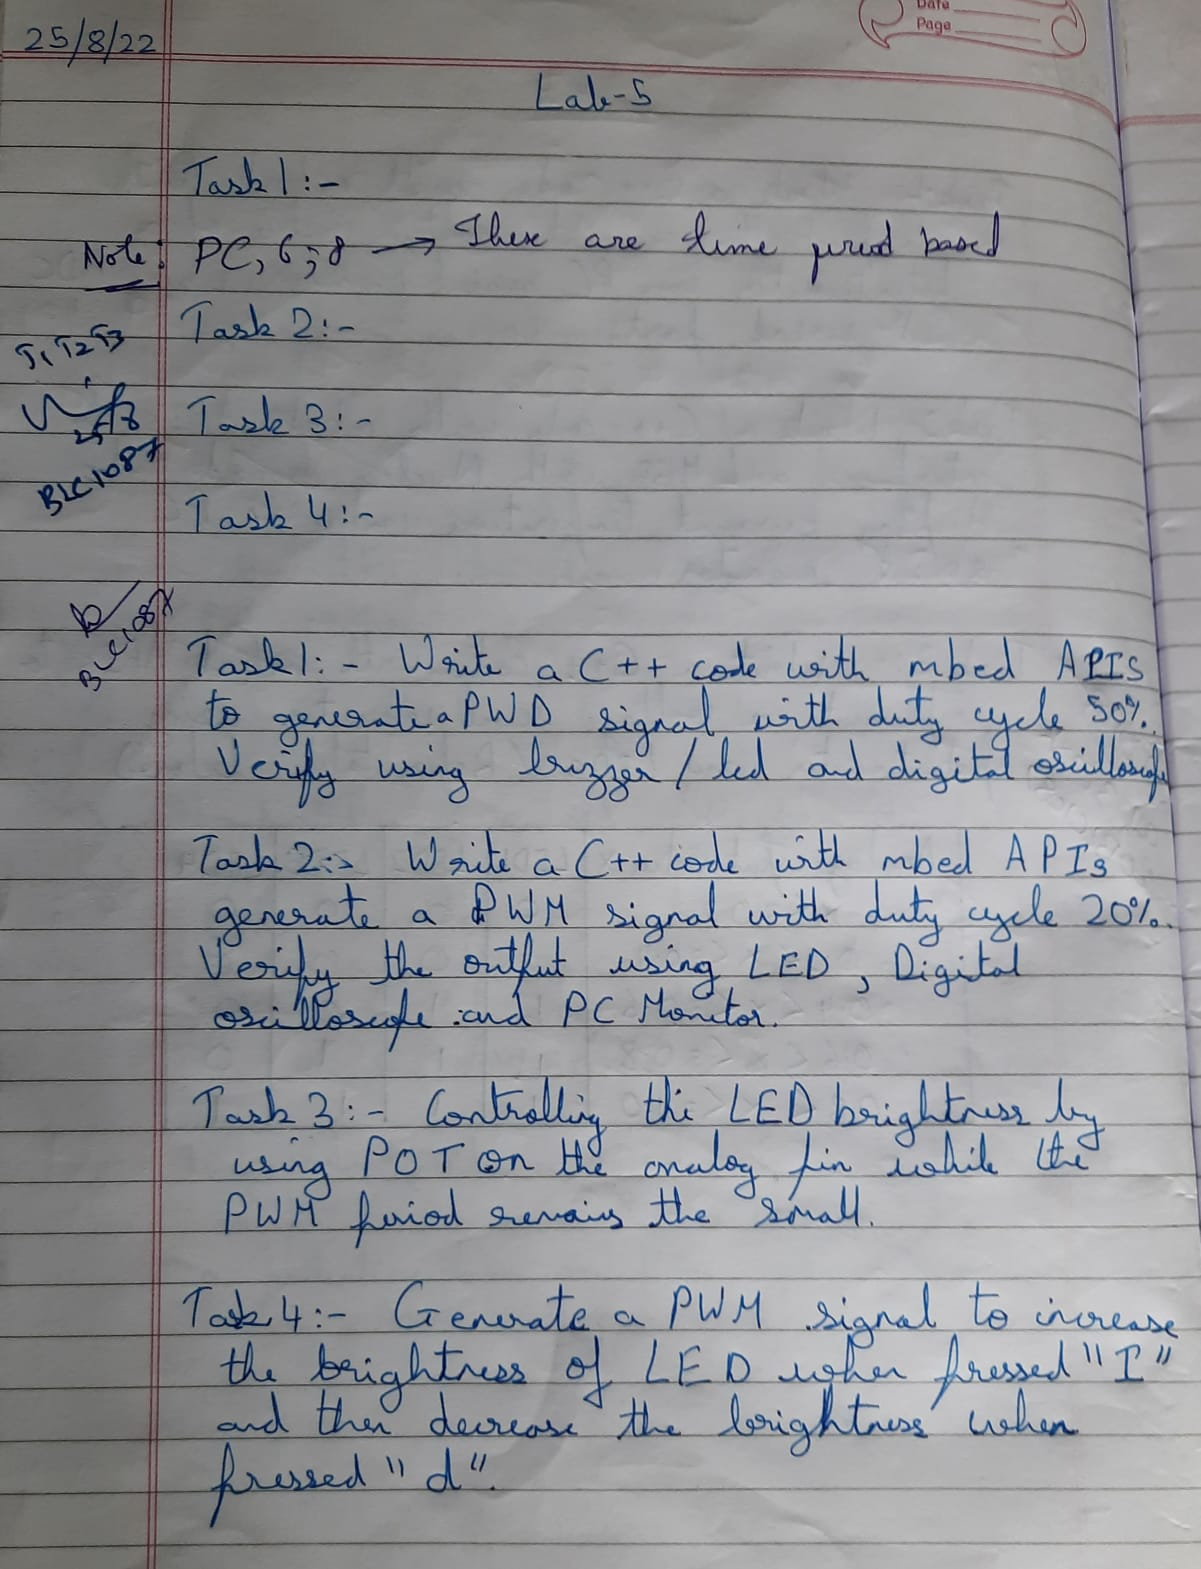 Date
Page
25/8/22
Lab-5
Task 1:-
Note: PC, 6, 8 → These are time period based
Task 2:-
T1 T2 T3
Task 3:-
25/8
BLC1087
Task 4:-
BLC1087
Task 1:- Write a C++ code with mbed APIS
to generate a PWD signal with duty cycle 50%.
Verify using buzzer / led and digital oscilloscope
Task 2:- Write a C++ code with mbed APIs
generate a PWM signal with duty cycle 20%.
Verify the output using LED, Digital
oscilloscope and PC Monitor.
Task 3:- Controlling the LED brightness by
using POT on the analog pin while the
PWM period remains the small.
Task 4:- Generate a PWM signal to increase
the brightness of LED when pressed "I"
and then decrease the brightness when
pressed "d".